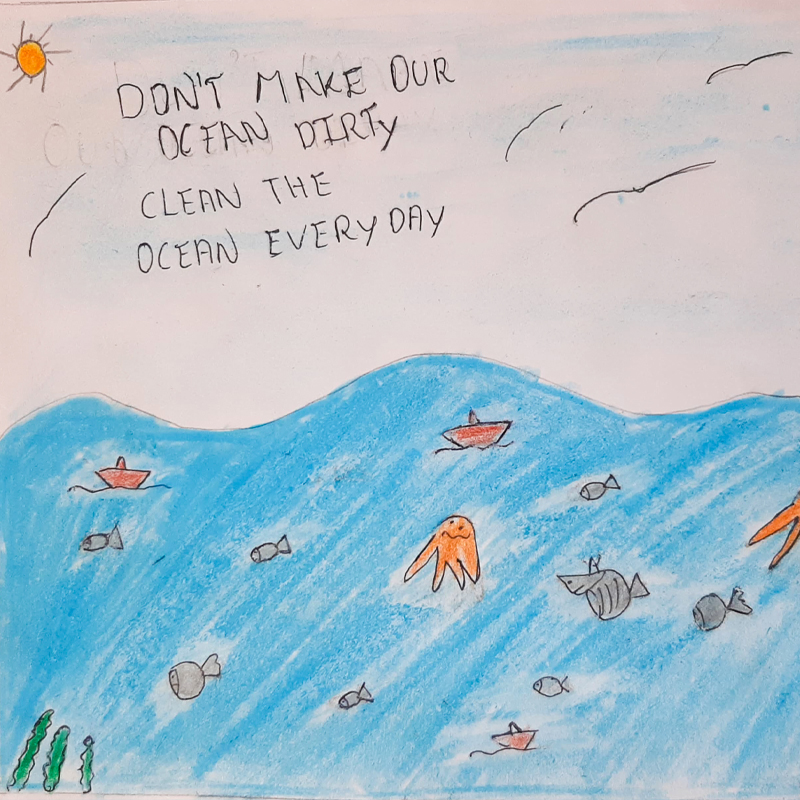 DON'T MAKE OUR
OCEAN DIRTY
CLEAN THE
OCEAN EVERYDAY